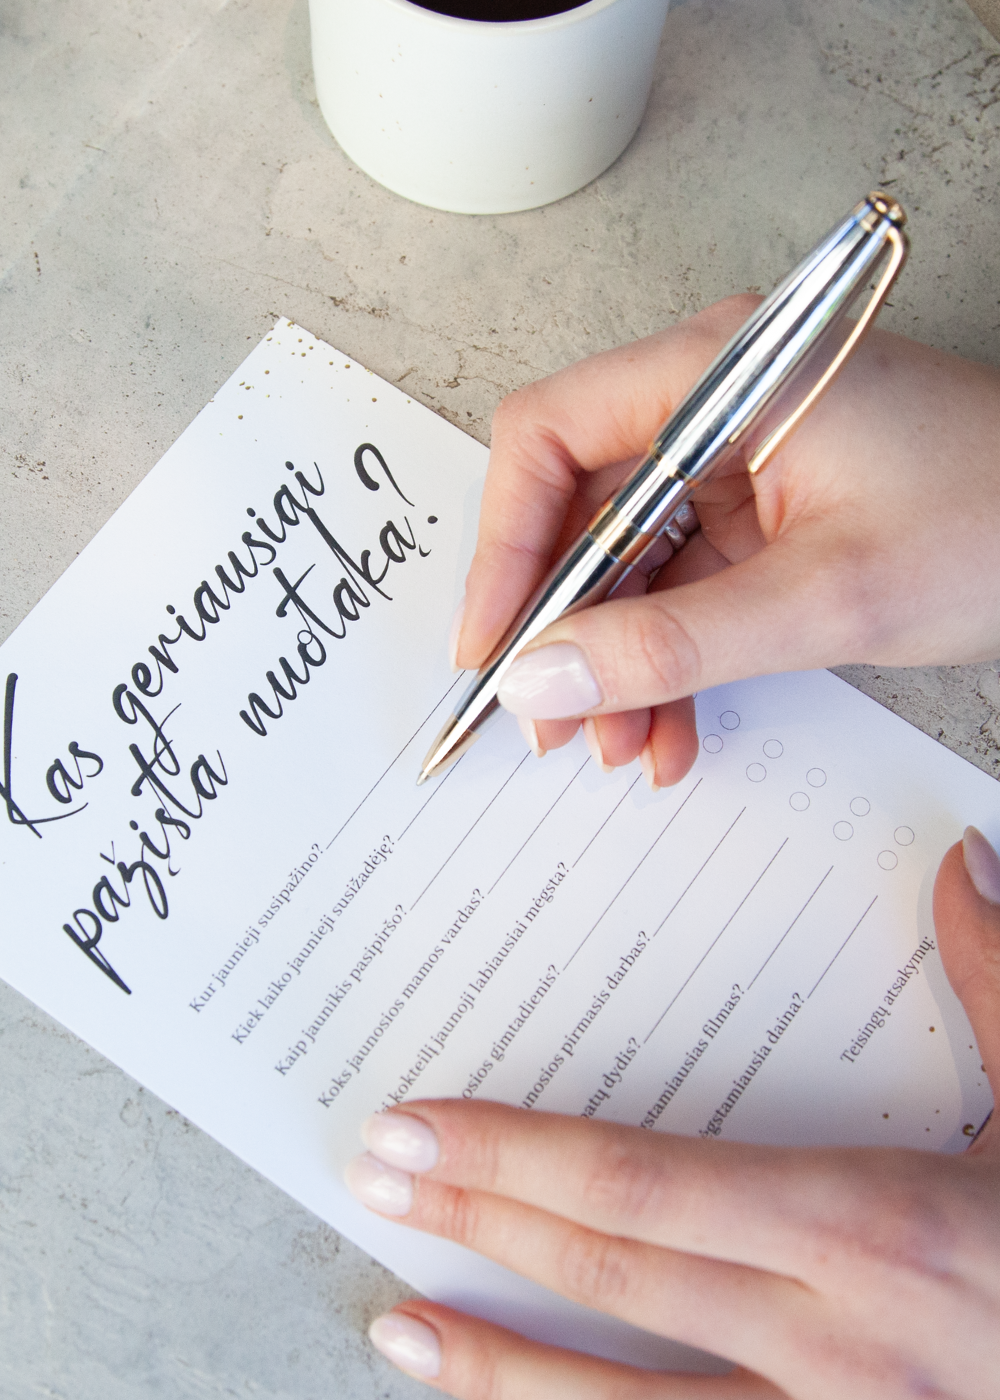 Kas geriausiai
pažįsta nuotaką?
Kur jaunieji susipažino?
Kiek laiko jaunieji susižadėję?
Kaip jaunikis pasipiršo?
Koks jaunosios mamos vardas?
kokteilį jaunoji labiausiai mėgsta?
gimtadienis?
pirmasis darbas?
dydis?
filmas?
daina?
Teisingų atsakymų: